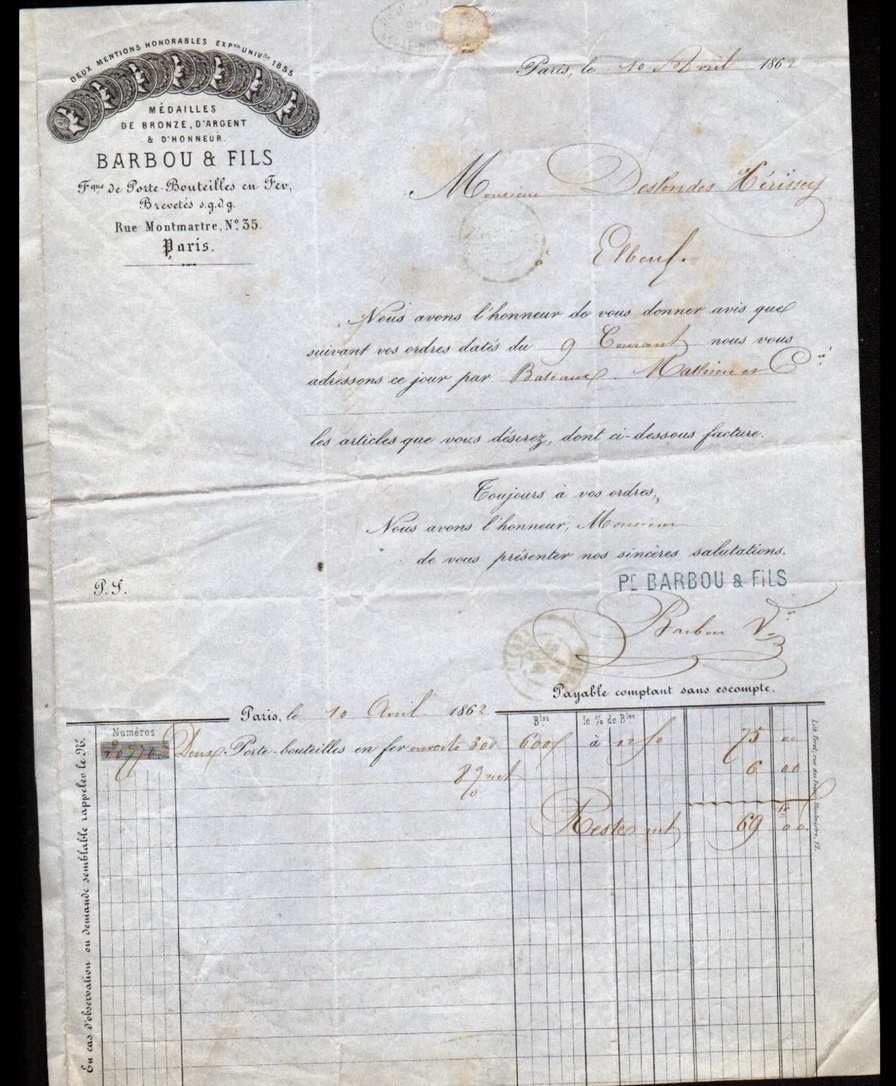 DEUX MENTIONS HONORABLES EXP.on UNIV.lle 1855
MÉDAILLES
DE BRONZE, D'ARGENT
& D'HONNEUR
BARBOU & FILS
Fque de Porte-Bouteilles en Fer,
Brevetés s.g.d.g.
Rue Montmartre, No 35.
Paris.
Paris, le 10 Avril 1862
Monsieur Desfondes Hérissey
Elbeuf.
Nous avons l'honneur de vous donner avis que
suivant vos ordres datés du 9 Courant nous vous
adressons ce jour par Bateaux Mathieu et Cie
les articles que vous désirez, dont ci-dessous facture.
Toujours à vos ordres,
Nous avons l'honneur, Monsieur
de vous présenter nos sincères salutations.
P.S.
Pr BARBOU & FILS
Barbou
Payable comptant sans escompte.
Paris, le 10 Avril 1862
Numéros Bles le % de Bles
20770 Deux Porte-bouteilles en fer ouverts 300 600 à 12 50 75 00
6 00
Reste net 69 00
En cas d'observation ou demande semblable rappelez le No.